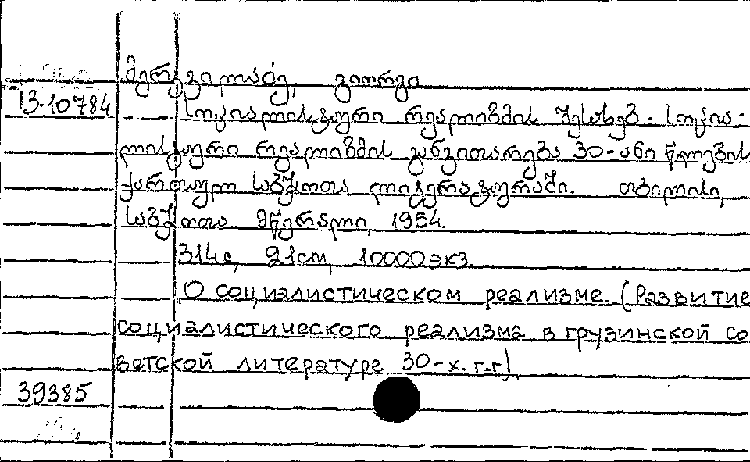 მერკვილაძე, გიორგი
13-10784 სოციალისტური რეალიზმის შესახებ. სოცია-
ლისტური რეალიზმის განვითარება 30-ანი წლების
ქართულ საბჭოთა ლიტერატურაში. თბილისი,
საბჭოთა მწერალი, 1954.
314с, 21см, 10000экз.
О социалистическом реализме. (Развитие
социалистического реализма в грузинской со
ветской литературе 30-х. г.г)
39385